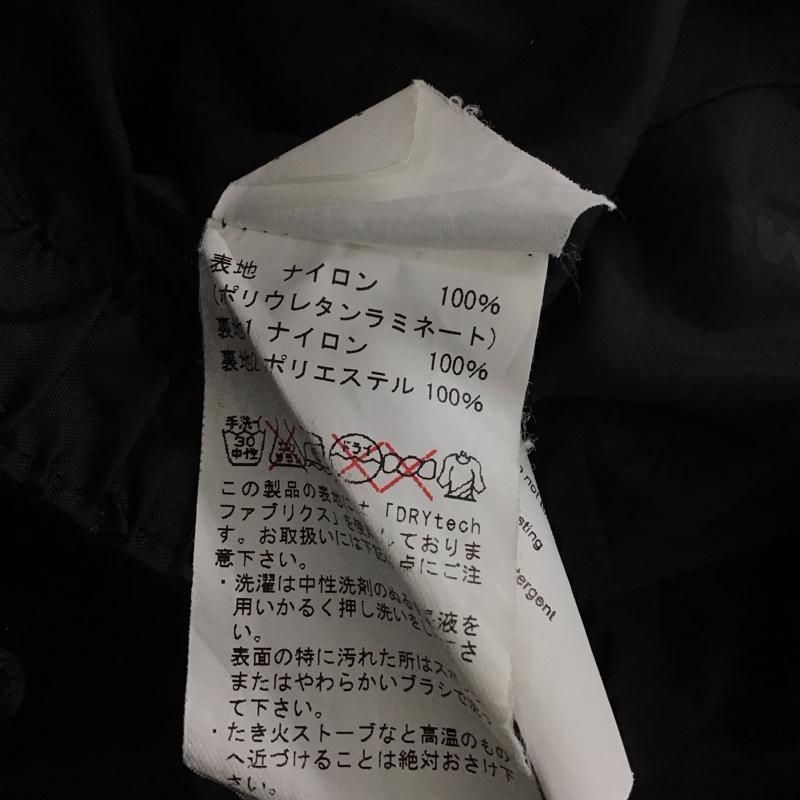 表地 ナイロン 100%
(ポリウレタンラミネート)
裏地1 ナイロン 100%
裏地 ポリエステル 100%
手洗イ
30
中性
ドライ
この製品の表地に 「DRYtech
ファブリクス」を使 しておりま
す。お取扱いには下記 点にご注
意下さい。
・洗濯は中性洗剤のぬる 液を
用いかるく押し洗いを さ
い。
表面の特に汚れた所はスポ
またはやわらかいブラシで
て下さい。
・たき火ストーブなと高温のもの
へ近づけることは絶対おさけ下
さい。